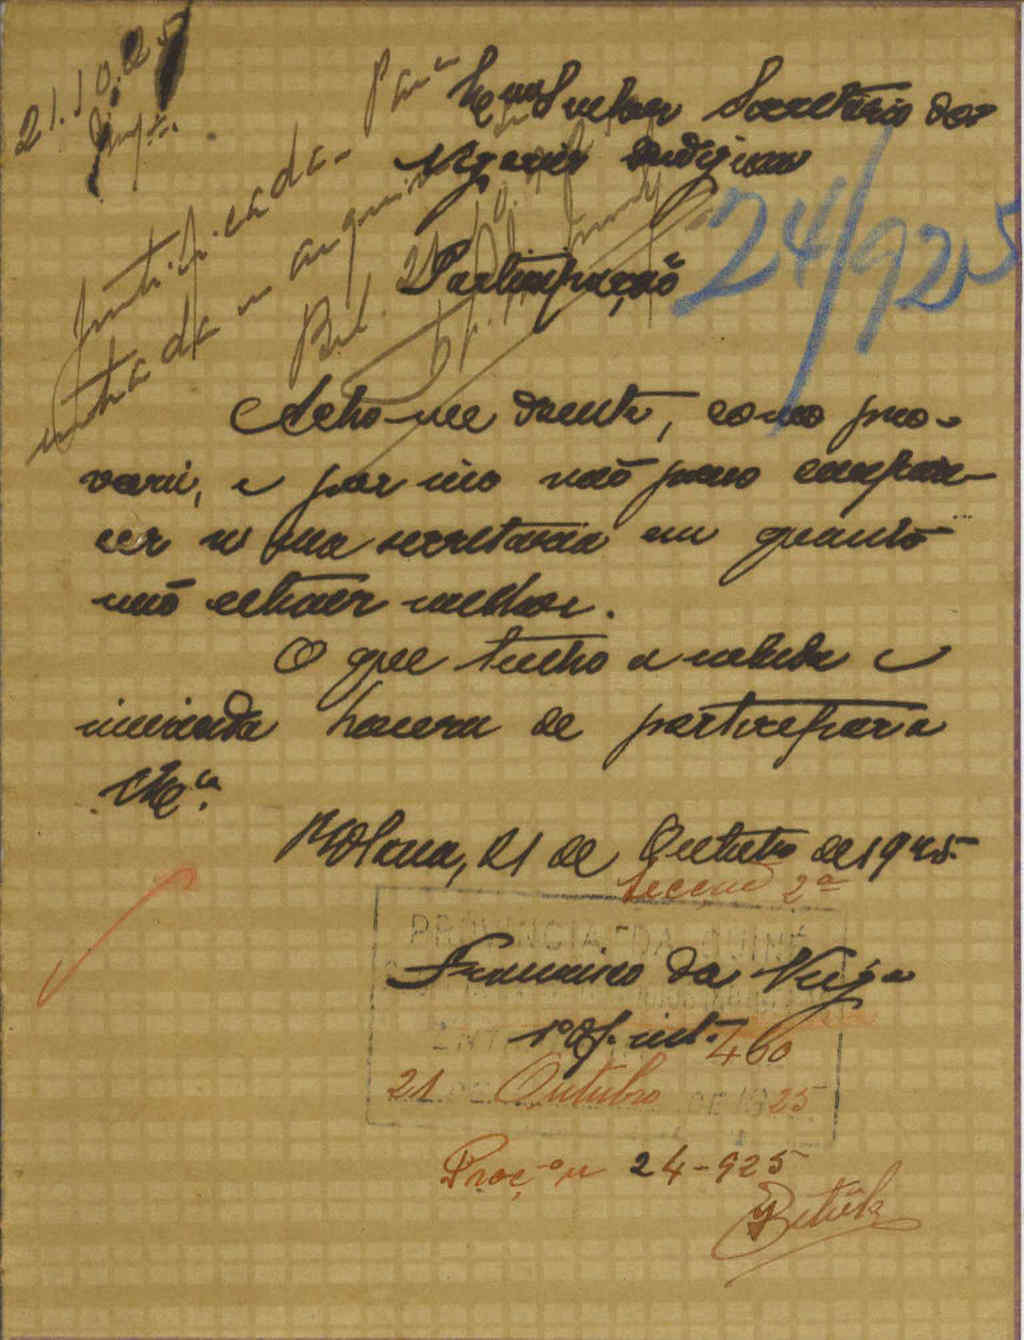 21.10.25
Justificada. Para
entrada no arquivo
Exmo Senhor Secretário dos
Negocios Indigenas
24/925
Participação
Acho-me doente, como pro-
varei, e por isso não posso compare-
cer n sua secretaria em quanto
não estiver melhor.
O que tenho a subida e
honra de participar a
V. Exa.
Bolama, 21 de Outubro de 1925.
Secção 2ª
PROVINCIA DA GUINÉ
da Veiga
1º Of. int.
460
21 Outubro DE 1925
Proc.º nº 24-925